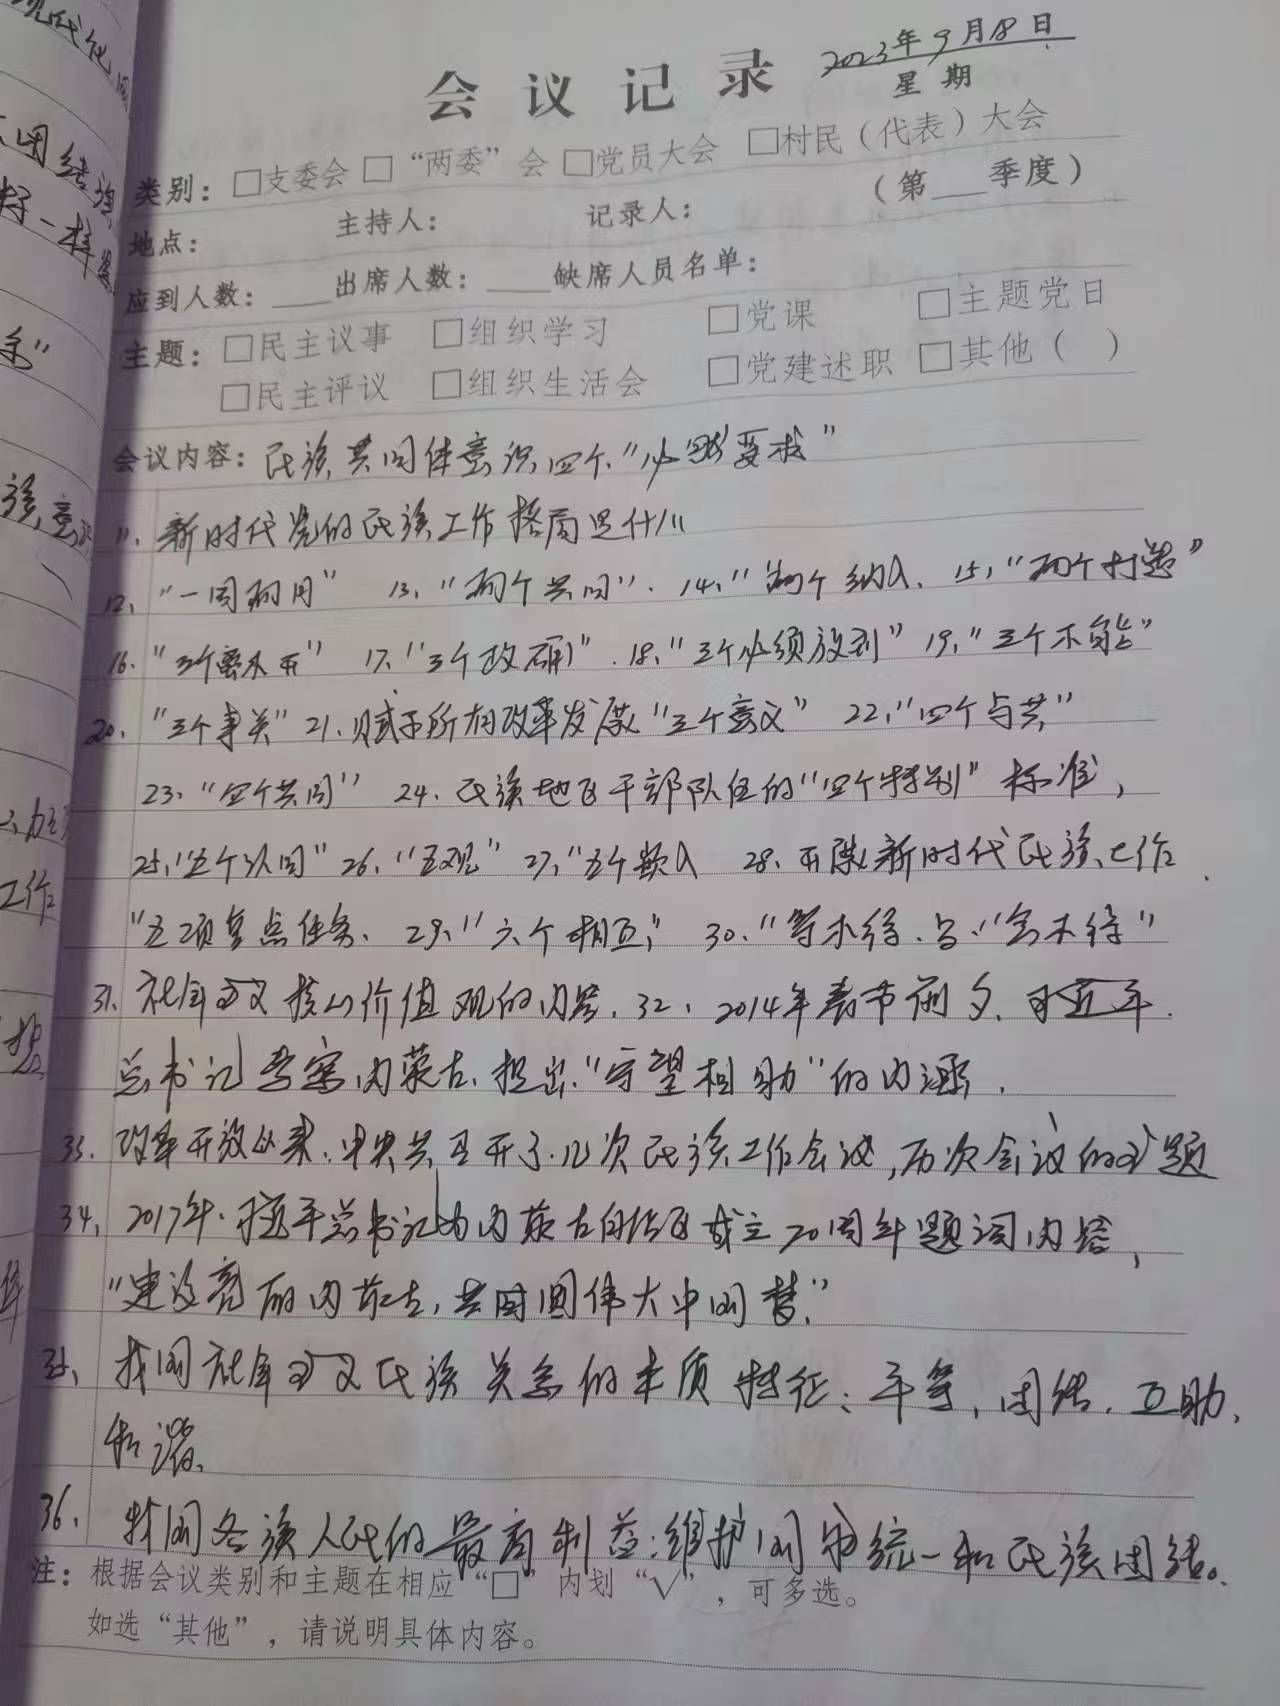 会议记录
2023年9月18日
星期
类别：□支委会 □“两委”会 □党员大会 □村民（代表）大会
（第___季度）
地点： 主持人： 记录人：
应到人数：___ 出席人数：___ 缺席人员名单：
主题：□民主议事 □组织学习 □党课 □主题党日
□民主评议 □组织生活会 □党建述职 □其他（ ）
会议内容：民族共同体意识四个“必然要求”
11、新时代党的民族工作格局是什么
12、“一同两用” 13、“两个共同”、14、“两个纳入、15、“两个打造”
16、“三个离不开” 17、“三个政确” 18、“三个必须放到” 19、“三个不能”
20、“三个事关” 21、赋予所有改革发展“三个意义” 22、“四个与共”
23、“四个共同” 24、民族地区干部队伍的“四个特别”标准，
25、“五个认同” 26、“五观” 27、“五个嵌入 28、开展新时代民族工作
“五项重点任务、29、“六个相互” 30、“等不得、与“急不得”
31、社会主义核心价值观的内容、32、2014年春节前夕、习近平
总书记考察内蒙古、提出“守望相助”的内涵、
33、改革开放以来、中央共召开了几次民族工作会议，历次会议的主题
34、2017年、习近平总书记为内蒙古自治区成立70周年题词内容，
“建设亮丽内蒙古，共圆伟大中国梦”
35、我国社会主义民族关系的本质特征：平等，团结、互助、
和谐、
36、我国各族人民的最高利益：维护国家统一和民族团结。
注：根据会议类别和主题在相应“□”内划“√”，可多选。
如选“其他”，请说明具体内容。